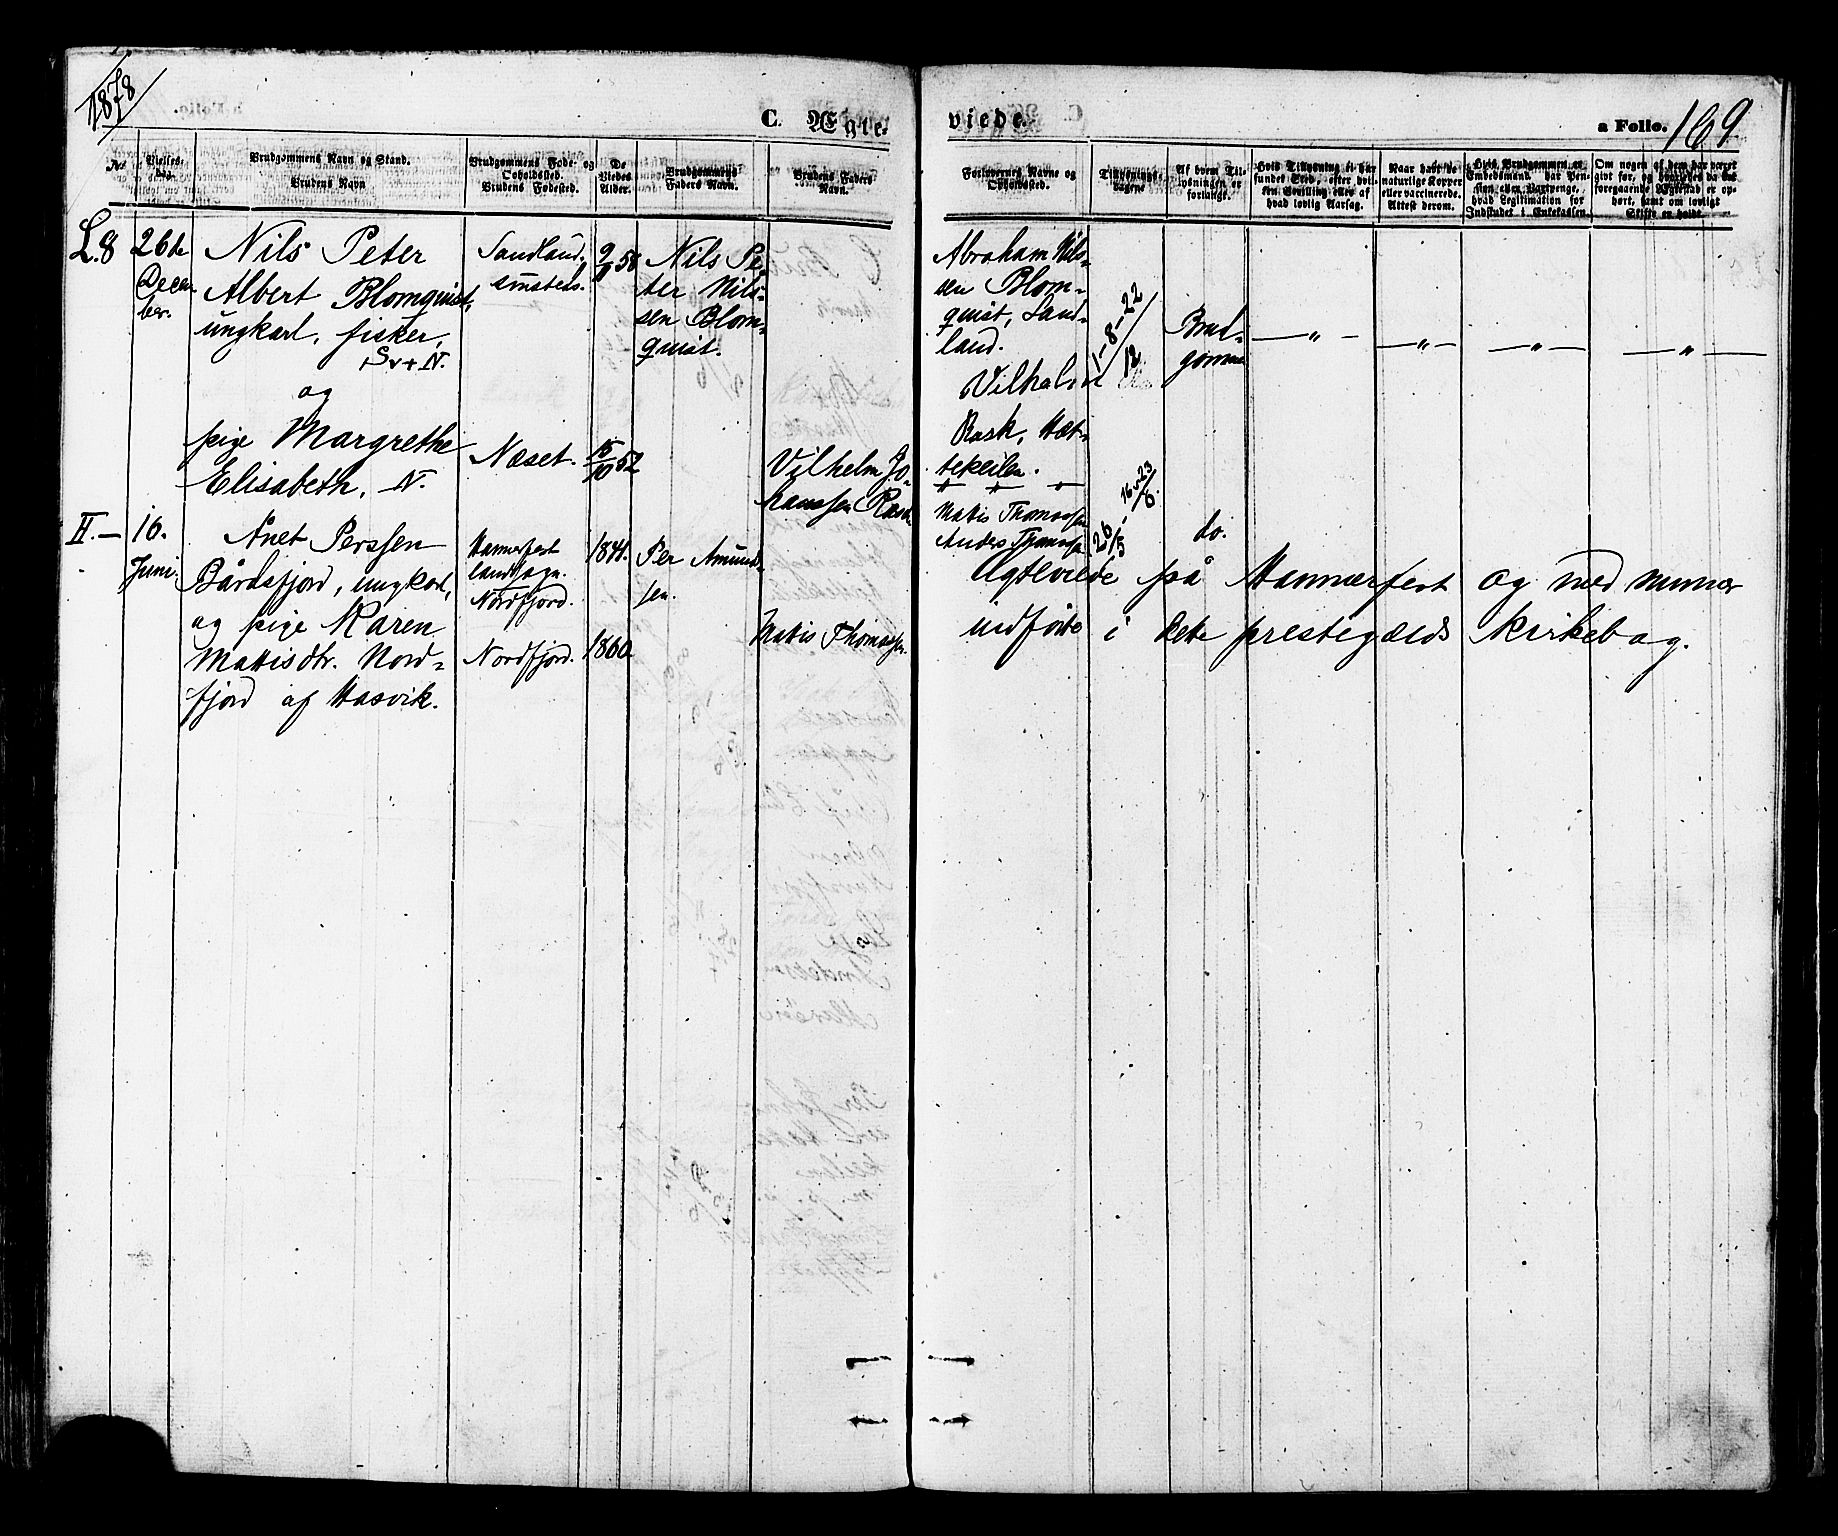 1878
C. Ægte-
viede.
a Folio. 169
No
Vielses-
dag.
Brudgommens Navn og Stand.
Brudens Navn
Brudgommens Føde- og
Opholdssted.
Brudens Fødested.
De
Viedes
Alder.
Brudgommens
Faders Navn.
Brudens Faders
Navn.
Forlovernes Navne og
Opholdssted.
Tillysnings-
dagene
Af hvem Til-
lysningen er
forlangt.
Hvis Tillysning ei har
fundet Sted, efter hvil-
ken Bevilling eller af
hvad lovlig Aarsag.
Naar havt de
naturlige Kopper
eller vaccinerede.
Attest derom.
Hvis Brudgommen er
Embedsmand, har Pen-
sion eller Vartpenge,
hvad Legitimation for
Indskudet i Enkekassen.
Om nogen af dem har været
gift før, og hvorledes da det
foregaaende Ægteskab er op-
hørt, samt om lovligt
Skifte er holdt.
L. 8
26de
Decem-
ber.
Nils Peter
Albert Blomquist,
ungkarl, fisker,
Sv + N.
og
pige Margrethe
Elisabeth, N.
Sandland,
smsteds.
Næset.
9/11 58
15/10 52
Nils Pe-
ter Nils-
sen Blom-
quist.
Vilhelm Jo-
hanssen Rask
Abraham Nils-
sen Blom-
quist, Sand-
land.
Vilhelm
Rask, Hæt-
tekeilen.
1-8-22/12
Brud-
gommen
— " — — " — — " — — " —
II. —
16.
Juni.
Anet Perssen
Bårdsfjord, ungkarl,
og pige Karen
Mattisdtr. Nord-
fjord af Hasvik.
Hammerfest
landsogn.
Nordfjord.
Nordfjord.
1841.
1860
Per Amund-
sen.
Mattis Thomassen.
Mattis Thomassen
Anders Thomassen
26/5 - 16 23/6.
do.
Ægteviede på Hammerfest og med numer
indførte i dette prestegjælds kirkebog.